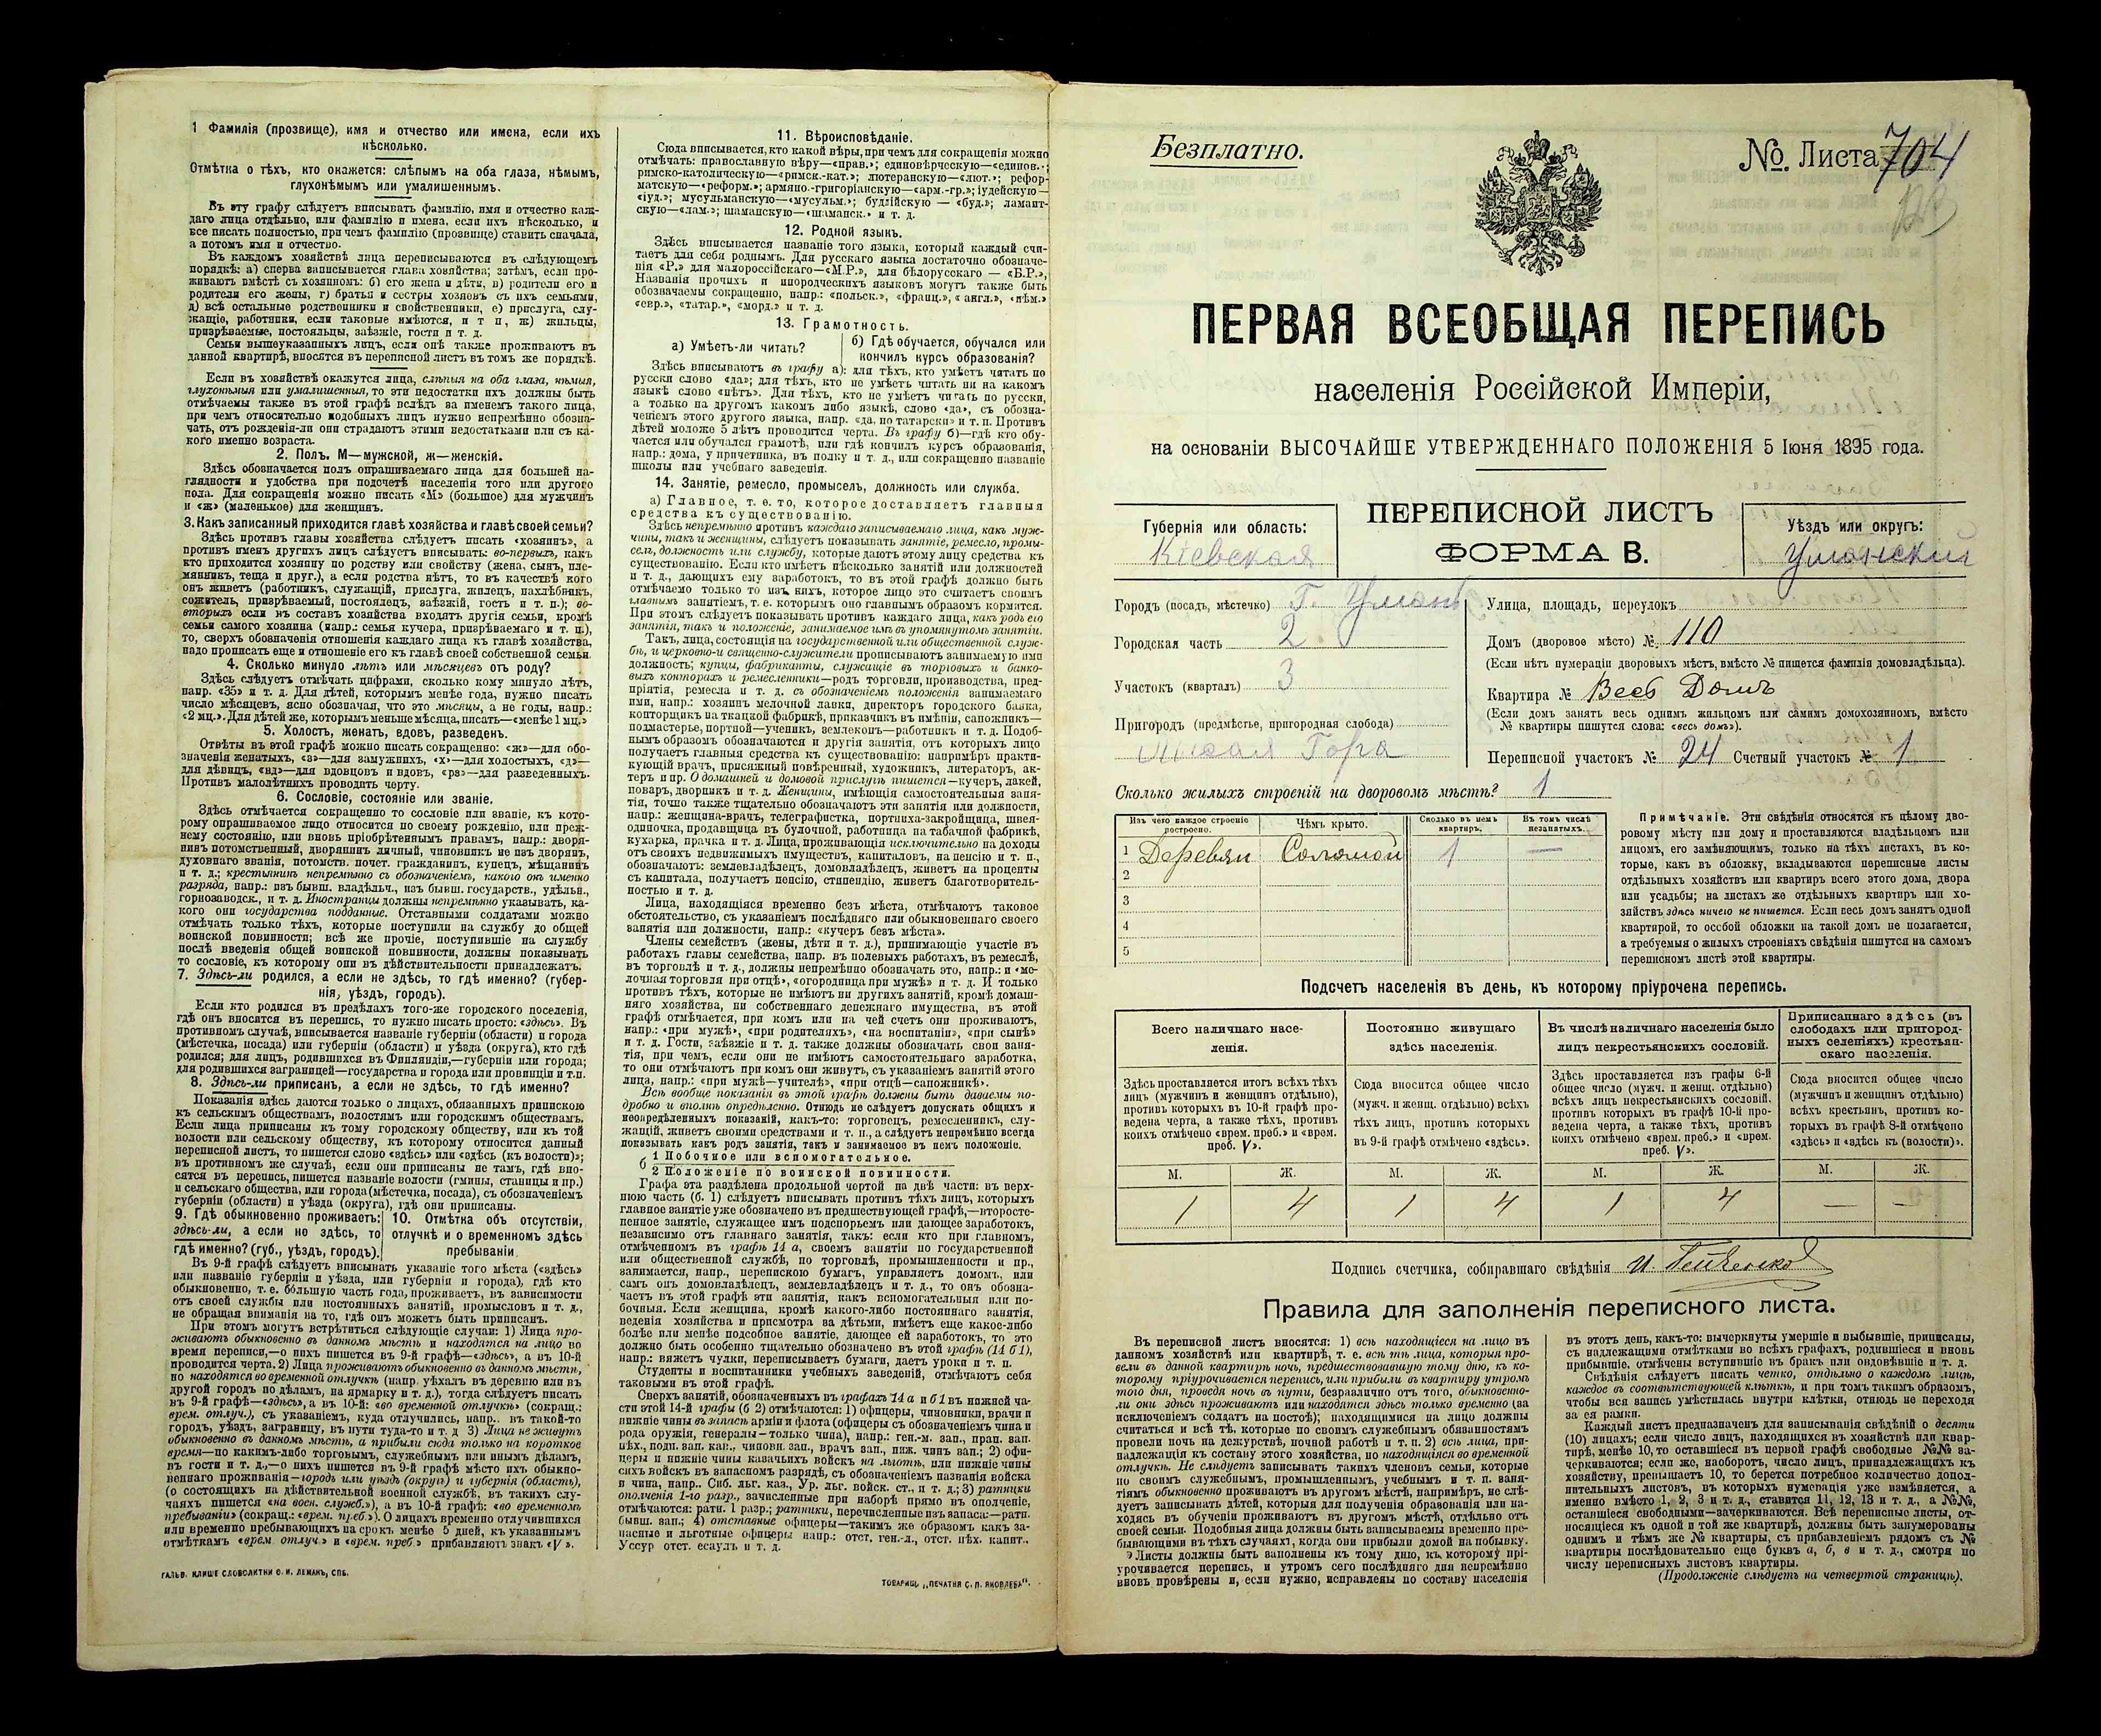 1 Фамилія (прозвище), имя и отчество или имена, если ихъ
нѣсколько.
Отмѣтка о тѣхъ, кто окажется: слѣпымъ на оба глаза, нѣмымъ,
глухонѣмымъ или умалишеннымъ.
Въ эту графу слѣдуетъ вписывать фамилію, имя и отчество каж-
даго лица отдѣльно, или фамилію и имена, если ихъ нѣсколько, и
все писать полностью, при чемъ фамилію (прозвище) ставить сначала,
а потомъ имя и отчество.
Въ каждомъ хозяйствѣ лица переписываются въ слѣдующемъ
порядкѣ: а) сперва записывается глава хозяйства; затѣмъ, если про-
живаютъ вмѣстѣ съ хозяиномъ: б) его жена и дѣти, в) родители его и
родители его жены, г) братья и сестры хозяевъ съ ихъ семьями,
д) всѣ остальные родственники и свойственники, е) прислуга, слу-
жащіе, работники, если таковые имѣются, и т п, ж) жильцы,
призрѣваемые, постояльцы, заѣзжіе, гости и т. д.
Семьи вышеуказанныхъ лицъ, если онѣ также проживаютъ въ
данной квартирѣ, вносятся въ переписной листъ въ томъ же порядкѣ.
Если въ хозяйствѣ окажутся лица, слѣпыя на оба глаза, нѣмыя,
глухонѣмыя или умалишенныя, то эти недостатки ихъ должны быть
отмѣчаемы также въ этой графѣ вслѣдъ за именемъ такого лица,
при чемъ относительно подобныхъ лицъ нужно непремѣнно обозна-
чать, отъ рожденія-ли они страдаютъ этими недостатками или съ ка-
кого именно возраста.
2. Полъ. М—мужской, ж—женскій.
Здѣсь обозначается полъ опрашиваемаго лица для большей на-
глядности и удобства при подсчетѣ населенія того или другого
пола. Для сокращенія можно писать «М» (большое) для мужчинъ
и «ж» (маленькое) для женщинъ.
3. Какъ записанный приходится главѣ хозяйства и главѣ своей семьи?
Здѣсь противъ главы хозяйства слѣдуетъ писать «хозяинъ», а
противъ именъ другихъ лицъ слѣдуетъ вписывать: во-первыхъ, какъ
кто приходится хозяину по родству или свойству (жена, сынъ, пле-
мянникъ, теща и друг.), а если родства нѣтъ, то въ качествѣ кого
онъ живетъ (работникъ, служащій, прислуга, жилецъ, нахлѣбникъ,
сожитель, призрѣваемый, постоялецъ, заѣзжій, гость и т. п.); во-
вторыхъ если въ составъ хозяйства входятъ другія семьи, кромѣ
семьи самого хозяина (напр.: семья кучера, призрѣваемаго и т. п.),
то, сверхъ обозначенія отношенія каждаго лица къ главѣ хозяйства,
надо прописать еще и отношеніе его къ главѣ своей собственной семьи.
4. Сколько минуло лѣтъ или мѣсяцевъ отъ роду?
Здѣсь слѣдуетъ отмѣчать цифрами, сколько кому минуло лѣтъ,
напр. «35» и т. д. Для дѣтей, которымъ менѣе года, нужно писать
число мѣсяцевъ, ясно обозначая, что это мѣсяцы, а не годы, напр.:
«2 мц.». Для дѣтей же, которымъ меньше мѣсяца, писать—«менѣе 1 мц.»
5. Холостъ, женатъ, вдовъ, разведенъ.
Отвѣты въ этой графѣ можно писать сокращенно: «ж»—для обо-
значенія женатыхъ, «з»—для замужнихъ, «х»—для холостыхъ, «д»—
для дѣвицъ, «вд»—для вдовцовъ и вдовъ, «рз»—для разведенныхъ.
Противъ малолѣтнихъ проводить черту.
6. Сословіе, состояніе или званіе.
Здѣсь отмѣчается сокращенно то сословіе или званіе, къ кото-
рому опрашиваемое лицо относится по своему рожденію, или преж-
нему состоянію, или вновь пріобрѣтеннымъ правамъ, напр.: дворя-
нинъ потомственный, дворянинъ личный, чиновникъ не изъ дворянъ,
духовнаго званія, потомств. почет. гражданинъ, купецъ, мѣщанинъ
и т. д.; крестьянинъ непремѣнно съ обозначеніемъ, какого онъ именно
разряда, напр.: изъ бывш. владѣльч., изъ бывш. государств., удѣльн.,
горнозаводск., и т. д. Иностранцы должны непремѣнно указывать, ка-
кого они государства подданные. Отставными солдатами можно
отмѣчать только тѣхъ, которые поступили на службу до общей
воинской повинности; всѣ же прочіе, поступившіе на службу
послѣ введенія общей воинской повинности, должны показывать
то сословіе, къ которому они въ дѣйствительности принадлежатъ.
7. Здѣсь-ли родился, а если не здѣсь, то гдѣ именно? (губер-
нія, уѣздъ, городъ).
Если кто родился въ предѣлахъ того-же городского поселенія,
гдѣ онъ вносится въ перепись, то нужно писать просто: «здѣсь». Въ
противномъ случаѣ, вписывается названіе губерніи (области) и города
(мѣстечка, посада) или губерніи (области) и уѣзда (округа), кто гдѣ
родился; для лицъ, родившихся въ Финляндіи,—губерніи или города;
для родившихся заграницей—государства и города или провинціи и т.п.
8. Здѣсь-ли приписанъ, а если не здѣсь, то гдѣ именно?
Показанія здѣсь даются только о лицахъ, обязанныхъ припискою
къ сельскимъ обществамъ, волостямъ или городскимъ обществамъ.
Если лица приписаны къ тому городскому обществу, или къ той
волости или сельскому обществу, къ которому относится данный
переписной листъ, то пишется слово «здѣсь» или «здѣсь (къ волости)»;
въ противномъ же случаѣ, если они приписаны не тамъ, гдѣ вно-
сятся въ перепись, пишется названіе волости (гмины, станицы и пр.)
и сельскаго общества, или города (мѣстечка, посада), съ обозначеніемъ
губерніи (области) и уѣзда (округа), гдѣ они приписаны.
9. Гдѣ обыкновенно проживаетъ:
здѣсь-ли, а если не здѣсь, то
гдѣ именно? (губ., уѣздъ, городъ).
10. Отмѣтка объ отсутствіи,
отлучкѣ и о временномъ здѣсь
пребываніи
Въ 9-й графѣ слѣдуетъ вписывать указаніе того мѣста («здѣсь»
или названіе губерніи и уѣзда, или губерніи и города), гдѣ кто
обыкновенно, т. е. большую часть года, проживаетъ, въ зависимости
отъ своей службы или постоянныхъ занятій, промысловъ и т. д.,
не обращая вниманія на то, гдѣ онъ можетъ быть приписанъ.
При этомъ могутъ встрѣтиться слѣдующіе случаи: 1) Лица про-
живаютъ обыкновенно въ данномъ мѣстѣ и находятся на лицо во
время переписи,—о нихъ пишется въ 9-й графѣ—«здѣсь», а въ 10-й
проводится черта. 2) Лица проживаютъ обыкновенно въ данномъ мѣстѣ,
но находятся во временной отлучкѣ (напр. уѣхалъ въ деревню или въ
другой городъ по дѣламъ, на ярмарку и т. д.), тогда слѣдуетъ писать
въ 9-й графѣ—«здѣсь», а въ 10-й: «во временной отлучкѣ» (сокращ.:
врем. отлуч.), съ указаніемъ, куда отлучились, напр.. въ такой-то
городъ, уѣздъ, заграницу, въ пути туда-то и т. д 3) Лица не живутъ
обыкновенно въ данномъ мѣстѣ, а прибыли сюда только на короткое
время—по какимъ-либо торговымъ, служебнымъ или инымъ дѣламъ,
въ гости и т. д.,—о нихъ пишется въ 9-й графѣ мѣсто ихъ обыкно-
веннаго проживанія—городъ или уѣздъ (округъ) и губернія (область),
(о состоящихъ на дѣйствительной военной службѣ, въ такихъ слу-
чаяхъ пишется «на воен. служб.»), а въ 10-й графѣ: «во временномъ
пребываніи» (сокращ.: «врем. преб.»). О лицахъ временно отлучившихся
или временно пребывающихъ на срокъ менѣе 5 дней, къ указаннымъ
отмѣткамъ «врем отлуч.» и «врем. преб.» прибавляютъ знакъ «V».
ГАЛЬВ. КЛИШЕ СЛОВОЛИТНИ О. И. ЛЕМАНЪ, СПБ.
11. Вѣроисповѣданіе.
Сюда вписывается, кто какой вѣры, при чемъ для сокращенія можно
отмѣчать: православную вѣру—«прав.»; единовѣрческую—«единов.»;
римско-католическую—«римск.-кат.»; лютеранскую—«лют.»; рефор-
матскую—«реформ.»; армяно.-григоріанскую—«арм.-гр.»; іудейскую—
«іуд.»; мусульманскую—«мусульм.»; буддійскую — «буд.»; ламаит-
скую—«лам.»; шаманскую—«шаманск.» и т. д.
12. Родной языкъ.
Здѣсь вписывается названіе того языка, который каждый счи-
таетъ для себя роднымъ. Для русскаго языка достаточно обозначе-
нія «Р.» для малороссійскаго—«М.Р.», для бѣлорусскаго — «Б.Р.»,
Названія прочихъ и инородческихъ языковъ могутъ также быть
обозначаемы сокращенно, напр.: «польск.», «франц.», «англ.», «нѣм.»
«евр.», «татар.», «морд.» и т. д.
13. Грамотность.
а) Умѣетъ-ли читать?
б) Гдѣ обучается, обучался или
кончилъ курсъ образованія?
Здѣсь вписываютъ въ графу а): для тѣхъ, кто умѣетъ читать по
русски слово «да»; для тѣхъ, кто не умѣетъ читать ни на какомъ
языкѣ слово «нѣтъ». Для тѣхъ, кто не умѣетъ читать по русски,
а только на другомъ какомъ либо языкѣ, слово «да», съ обозна-
ченіемъ этого другого языка, напр. «да, по татарски» и т. п. Противъ
дѣтей моложе 5 лѣтъ проводится черта. Въ графу б)—гдѣ кто обу-
чается или обучался грамотѣ, или гдѣ кончилъ курсъ образованія,
напр.: дома, у причетника, въ полку и т. д., или сокращенно названіе
школы или учебнаго заведенія.
14. Занятіе, ремесло, промыселъ, должность или служба.
а) Главное, т. е. то, которое доставляетъ главныя
средства къ существованію.
Здѣсь непремѣнно противъ каждаго записываемаго лица, какъ муж-
чины, такъ и женщины, слѣдуетъ показывать занятіе, ремесло, промы-
селъ, должность или службу, которые даютъ этому лицу средства къ
существованію. Если кто имѣетъ нѣсколько занятій или должностей
и т. д., дающихъ ему заработокъ, то въ этой графѣ должно быть
отмѣчаемо только то изъ нихъ, которое лицо это считаетъ своимъ
главнымъ занятіемъ, т. е. которымъ оно главнымъ образомъ кормится.
При этомъ слѣдуетъ показывать противъ каждаго лица, какъ родъ его
занятія, такъ и положеніе, занимаемое имъ въ упомянутомъ занятіи.
Такъ, лица, состоящія на государственной или общественной служ-
бѣ, и церковно-и священно-служители прописываютъ занимаемую ими
должность; купцы, фабриканты, служащіе въ торговыхъ и банко-
выхъ конторахъ и ремесленники—родъ торговли, производства, пред-
пріятія, ремесла и т. д. съ обозначеніемъ положенія занимаемаго
ими, напр.: хозяинъ мелочной лавки, директоръ городского банка,
конторщикъ на ткацкой фабрикѣ, приказчикъ въ имѣніи, сапожникъ—
подмастерье, портной—ученикъ, землекопъ—работникъ и т. д. Подоб-
нымъ образомъ обозначаются и другія занятія, отъ которыхъ лицо
получаетъ главныя средства къ существованію: напримѣръ практи-
кующій врачъ, присяжный повѣренный, художникъ, литераторъ, ак-
теръ и пр. О домашней и домовой прислугѣ пишется—кучеръ, лакей,
поваръ, дворникъ и т. д. Женщины, имѣющія самостоятельныя заня-
тія, точно также тщательно обозначаютъ эти занятія или должности,
напр.: женщина-врачъ, телеграфистка, портниха-закройщица, швея-
одиночка, продавщица въ булочной, работница на табачной фабрикѣ,
кухарка, прачка и т. д. Лица, проживающія исключительно на доходы
отъ своихъ недвижимыхъ имуществъ, капиталовъ, на пенсію и т. п.,
обозначаютъ: землевладѣлецъ, домовладѣлецъ, живетъ на проценты
съ капитала, получаетъ пенсію, стипендію, живетъ благотворитель-
ностью и т. д.
Лица, находящіяся временно безъ мѣста, отмѣчаютъ таковое
обстоятельство, съ указаніемъ послѣдняго или обыкновеннаго своего
занятія или должности, напр.: «кучеръ безъ мѣста».
Члены семействъ (жены, дѣти и т. д.), принимающіе участіе въ
работахъ главы семейства, напр. въ полевыхъ работахъ, въ ремеслѣ,
въ торговлѣ и т. д., должны непремѣнно обозначать это, напр.: и «ме-
лочная торговля при отцѣ», «огородница при мужѣ» и т. д. И только
противъ тѣхъ, которые не имѣютъ ни другихъ занятій, кромѣ домаш-
няго хозяйства, ни собственнаго денежнаго имущества, въ этой
графѣ отмѣчается, при комъ или на чей счетъ они проживаютъ,
напр.: «при мужѣ», «при родителяхъ», «на воспитаніи», «при сынѣ»
и т. д. Гости, заѣзжіе и т. д. также должны обозначать свои заня-
тія, при чемъ, если они не имѣютъ самостоятельнаго заработка,
то они отмѣчаютъ при комъ они живутъ, съ указаніемъ занятій этого
лица, напр.: «при мужѣ—учителѣ», «при отцѣ—сапожникѣ».
Всѣ вообще показанія въ этой графѣ должны быть даваемы по-
дробно и вполнѣ опредѣленно. Отнюдь не слѣдуетъ допускать общихъ и
неопредѣленныхъ показаній, какъ-то: торговецъ, ремесленникъ, слу-
жащій, живетъ своими средствами и т. п., а слѣдуетъ непремѣнно всегда
показывать какъ родъ занятія, такъ и занимаемое въ немъ положеніе.
б
1 Побочное или вспомогательное.
2 Положеніе по воинской повинности.
Графа эта раздѣлена продольной чертой на двѣ части: въ верх-
нюю часть (б. 1) слѣдуетъ вписывать противъ тѣхъ лицъ, которыхъ
главное занятіе уже обозначено въ предшествующей графѣ,—второсте-
пенное занятіе, служащее имъ подспорьемъ или дающее заработокъ,
независимо отъ главнаго занятія, такъ: если кто при главномъ,
отмѣченномъ въ графѣ 14 а, своемъ занятіи по государственной
или общественной службѣ, по торговлѣ, промышленности и пр.,
занимается, напр., перепискою бумагъ, управляетъ домомъ, или
самъ онъ домовладѣлецъ, землевладѣлецъ и т. д., то онъ обозна-
чаетъ въ этой графѣ эти занятія, какъ вспомогательныя или по-
бочныя. Если женщина, кромѣ какого-либо постояннаго занятія,
веденія хозяйства и присмотра за дѣтьми, имѣетъ еще какое-либо
болѣе или менѣе подсобное занятіе, дающее ей заработокъ, то это
должно быть особенно тщательно обозначено въ этой графѣ (14 б 1),
напр.: вяжетъ чулки, переписываетъ бумаги, даетъ уроки и т. п.
Студенты и воспитанники учебныхъ заведеній, отмѣчаютъ себя
таковыми въ этой графѣ.
Сверхъ занятій, обозначенныхъ въ графахъ 14 а и б 1 въ нижней ча-
сти этой 14-й графы (б 2) отмѣчаются: 1) офицеры, чиновники, врачи и
нижніе чины въ запасѣ арміи и флота (офицеры съ обозначеніемъ чина и
рода оружія, генералы—только чина), напр.: ген.-м. зап., прап. зап.
пѣх., подп. зап. кав., чиновн. зап., врачъ зап., ниж. чинъ зап.; 2) офи-
церы и нижніе чины казачьихъ войскъ на льготѣ, или нижніе чины
сихъ войскъ въ запасномъ разрядѣ, съ обозначеніемъ названія войска
и чина, напр.. Сиб. льг. каз., Ур. льг. войск. ст., и т. д.; 3) ратники
ополченія 1-го разр., зачисленные при наборѣ прямо въ ополченіе,
отмѣчаются: ратн. 1 разр.; ратники, перечисленные изъ запаса:—ратн.
бывш. зап.; 4) отставные офицеры—такимъ же образомъ какъ за-
пасные и льготные офицеры напр.: отст. ген.-л., отст. пѣх. капит.,
Уссур отст. есаулъ и т. д.
ТОВАРИЩ. „ПЕЧАТНЯ С. П. ЯКОВЛЕВА".
Безплатно.
№. Листа 704
ПЕРВАЯ ВСЕОБЩАЯ ПЕРЕПИСЬ
населенія Россійской Имперіи,
на основаніи ВЫСОЧАЙШЕ УТВЕРЖДЕННАГО ПОЛОЖЕНІЯ 5 Іюня 1895 года.
ПЕРЕПИСНОЙ ЛИСТЪ
ФОРМА В.
Губернія или область:
Кіевская
Уѣздъ или округъ:
Уманскій
Городъ (посадъ, мѣстечко) г. Умань
Городская часть 2
Участокъ (кварталъ) 3
Пригородъ (предмѣстье, пригородная слобода)
Лысая Гора
Улица, площадь, переулокъ
Домъ (дворовое мѣсто) № 110
(Если нѣтъ нумераціи дворовыхъ мѣстъ, вмѣсто № пишется фамилія домовладѣльца).
Квартира № Весь Домъ
(Если домъ занятъ весь однимъ жильцомъ или самимъ домохозяиномъ, вмѣсто
№ квартиры пишутся слова: «весь домъ»).
Переписной участокъ № 24 Счетный участокъ № 1
Сколько жилыхъ строеній на дворовомъ мѣстѣ? 1
Изъ чего каждое строеніе построено.
Чѣмъ крыто.
Сколько въ немъ квартиръ.
Въ томъ числѣ незанятыхъ.
1 Деревян Соломой 1 —
2
3
4
5
Примѣчаніе. Эти свѣдѣнія относятся къ цѣлому дво-
ровому мѣсту или дому и проставляются владѣльцемъ или
лицомъ, его замѣняющимъ, только на тѣхъ листахъ, въ ко-
торые, какъ въ обложку, вкладываются переписные листы
отдѣльныхъ хозяйствъ или квартиръ всего этого дома, двора
или усадьбы; на листахъ же отдѣльныхъ квартиръ или хо-
зяйствъ здѣсь ничего не пишется. Если весь домъ занятъ одной
квартирой, то особой обложки на такой домъ не полагается,
а требуемыя о жилыхъ строеніяхъ свѣдѣнія пишутся на самомъ
переписномъ листѣ этой квартиры.
Подсчетъ населенія въ день, къ которому пріурочена перепись.
Всего наличнаго насе-
ленія.
Постоянно живущаго
здѣсь населенія.
Въ числѣ наличнаго населенія было
лицъ некрестьянскихъ сословій.
Приписаннаго здѣсь (въ
слободахъ или пригород-
ныхъ селеніяхъ) крестьян-
скаго населенія.
Здѣсь проставляется итогъ всѣхъ тѣхъ
лицъ (мужчинъ и женщинъ отдѣльно),
противъ которыхъ въ 10-й графѣ про-
ведена черта, а также тѣхъ, противъ
коихъ отмѣчено «врем. преб.» и «врем.
преб. V».
Сюда вносится общее число
(мужч. и женщ. отдѣльно) всѣхъ
тѣхъ лицъ, противъ которыхъ
въ 9-й графѣ отмѣчено «здѣсь».
Здѣсь проставляется изъ графы 6-й
общее число (мужч. и женщ. отдѣльно)
всѣхъ лицъ некрестьянскихъ сословій,
противъ которыхъ въ графѣ 10-й про-
ведена черта, а также тѣхъ, противъ
коихъ отмѣчено «врем. преб.» и «врем.
преб. V».
Сюда вносится общее число
(мужчинъ и женщинъ отдѣльно)
всѣхъ крестьянъ, противъ ко-
торыхъ въ графѣ 8-й отмѣчено
«здѣсь» и «здѣсь къ (волости)».
М. Ж. М. Ж. М. Ж. М. Ж.
1 4 1 4 1 4 — —
Подпись счетчика, собиравшаго свѣдѣнія И.
Правила для заполненія переписного листа.
Въ переписной листъ вносятся: 1) всѣ находящіеся на лицо въ
данномъ хозяйствѣ или квартирѣ, т. е. всѣ тѣ лица, которыя про-
вели въ данной квартирѣ ночь, предшествовавшую тому дню, къ ко-
торому пріурочивается перепись, или прибыли въ квартиру утромъ
того дня, проведя ночь въ пути, безразлично отъ того, обыкновенно-
ли они здѣсь проживаютъ или находятся здѣсь только временно (за
исключеніемъ солдатъ на постоѣ); находящимися на лицо должны
считаться и всѣ тѣ, которые по своимъ служебнымъ обязанностямъ
провели ночь на дежурствѣ, ночной работѣ и т. п. 2) всѣ лица, при-
надлежащія къ составу этого хозяйства, но находящіяся во временной
отлучкѣ. Не слѣдуетъ записывать такихъ членовъ семьи, которые
по своимъ служебнымъ, промышленнымъ, учебнымъ и т. п. заня-
тіямъ обыкновенно проживаютъ въ другомъ мѣстѣ, напримѣръ, не слѣ-
дуетъ записывать дѣтей, которыя для полученія образованія или на-
ходясь въ обученіи проживаютъ въ другомъ мѣстѣ, отдѣльно отъ
своей семьи. Подобныя лица должны быть записываемы временно пре-
бывающими въ тѣхъ случаяхъ, когда они прибыли домой на побывку.
Листы должны быть заполнены къ тому дню, къ которому прі-
урочивается перепись, и утромъ сего послѣдняго дня непремѣнно
вновь провѣрены и, если нужно, исправлены по составу населенія
въ этотъ день, какъ-то: вычеркнуты умершіе и выбывшіе, приписаны,
съ надлежащими отмѣтками во всѣхъ графахъ, родившіеся и вновь
прибывшіе, отмѣчены вступившіе въ бракъ или овдовѣвшіе и т. д.
Свѣдѣнія слѣдуетъ писать четко, отдѣльно о каждомъ лицѣ,
каждое въ соотвѣтствующей клѣткѣ, и при томъ такимъ образомъ,
чтобы вся запись умѣстилась внутри клѣтки, отнюдь не переходя
за ея рамки.
Каждый листъ предназначенъ для записыванія свѣдѣній о десяти
(10) лицахъ; если число лицъ, находящихся въ хозяйствѣ или квар-
тирѣ, менѣе 10, то оставшіеся въ первой графѣ свободные №№ за-
черкиваются; если же, наоборотъ, число лицъ, принадлежащихъ къ
хозяйству, превышаетъ 10, то берется потребное количество допол-
нительныхъ листовъ, въ которыхъ нумерація уже измѣняется, а
именно вмѣсто 1, 2, 3 и т. д., ставится 11, 12, 13 и т. д., а №№,
оставшіеся свободными—зачеркиваются. Всѣ переписные листы, от-
носящіеся къ одной и той же квартирѣ, должны быть занумерованы
однимъ и тѣмъ же № квартиры, съ прибавленіемъ рядомъ съ №
квартиры послѣдовательно еще буквъ а, б, в и т. д., смотря по
числу переписныхъ листовъ квартиры.
(Продолженіе слѣдуетъ на четвертой страницѣ).